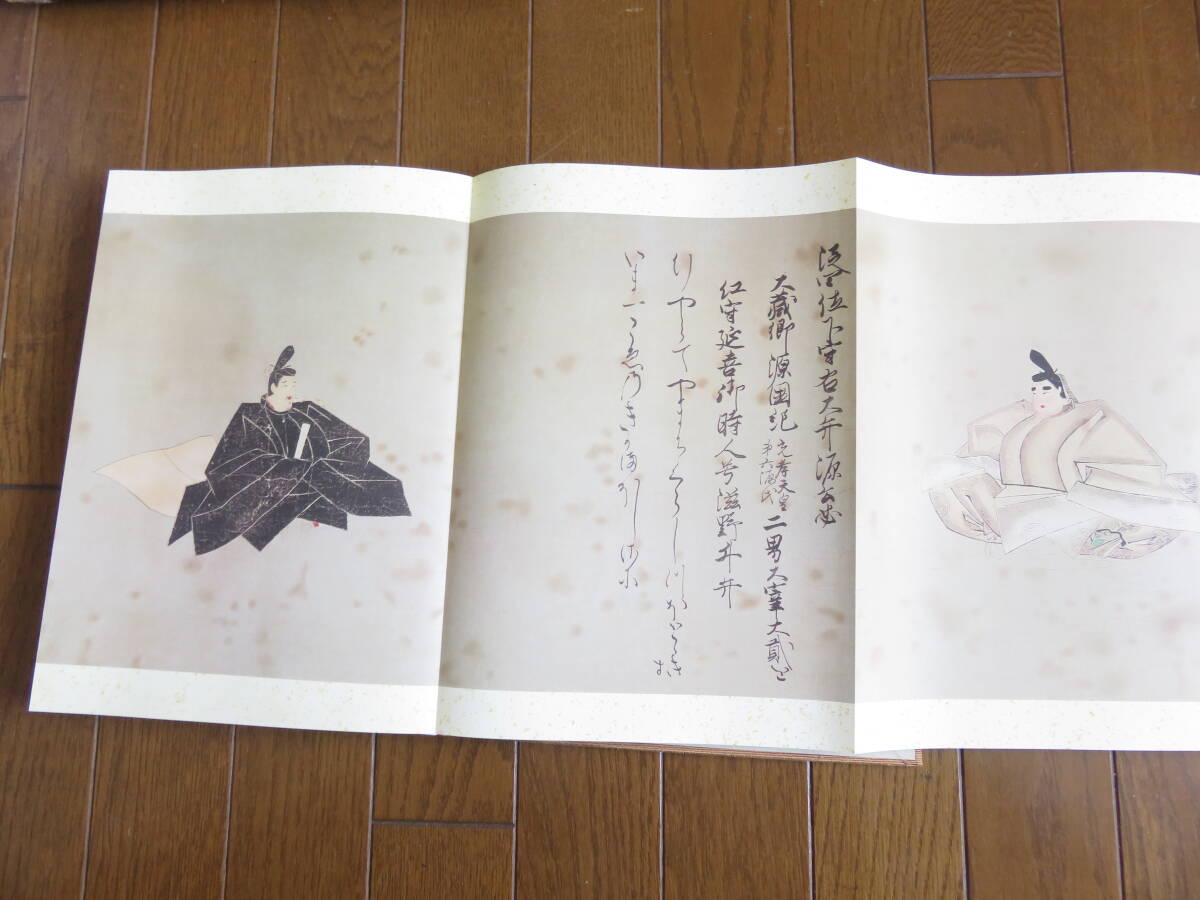 従四位下守右大弁源公忠
大蔵卿源国紀光孝天皇
第六源氏二男大宰大貳
延喜御時人号滋野井弁
ゆきやらてやまちくらしつほとゝきす
いま一こゑのきかまほしさに